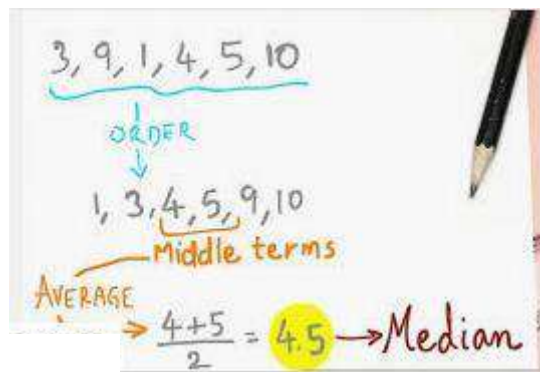 3, 9, 1, 4, 5, 10
ORDER
1, 3, 4, 5, 9, 10
Middle terms
AVERAGE
4+5
2
= 4.5 → Median